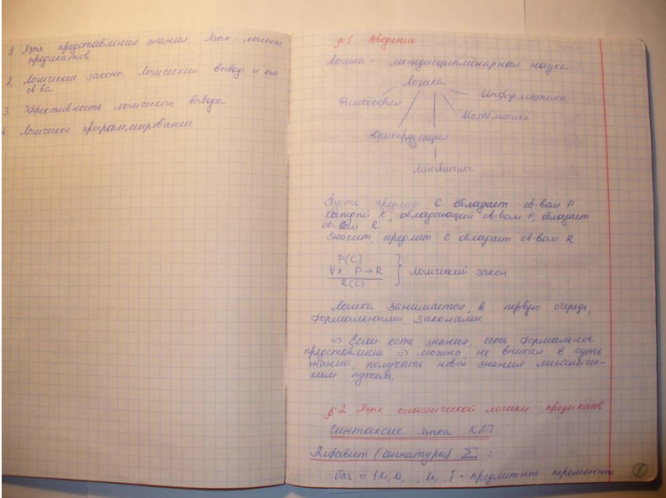 1. Язык представления знания. Язык логики
предикатов
2. Логические законы. Логический вывод и его
св-ва
3. Эффективность логического вывода
4. Логическое программирование
§1 Введение
Логика - междисциплинарная наука
Логика
Философия
Информатика
Математика
Юриспруденция
Лингвистика
Пусть предмет C обладает св-вом P
Каждый X, обладающий св-вом P, обладает
св-вом R
Значит, предмет C обладает св-вом R
P(C)
∀x P→R
R(C)
} логический закон
Логика занимается, в первую очередь,
формальными законами.
⇒ Если есть знания, есть формальное
представление ⇒ можно, не вникая в суть
знаний, получать новой знания механичес-
ким путем.
§2 Язык классической логики предикатов
Синтаксис языка КЛП
Алфавит (сигнатура) Σ :
Var = {x1, x2, xk, } - предметные переменные